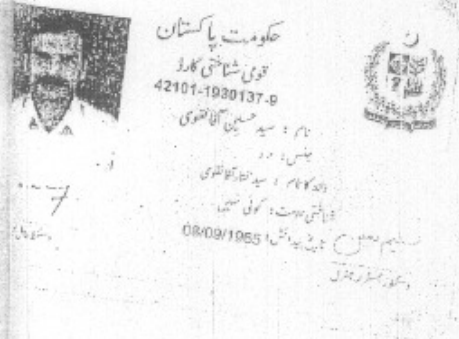 حکومت پاکستان
قومی شناختی کارڈ
42101-1930137-9
نام : سید آغا نقوی
جنس : مرد
والد کا نام : سید آغا نقوی
شناختی علامت : کوئی نہیں
تاریخ پیدائش :
دستخط رجسٹرار جنرل